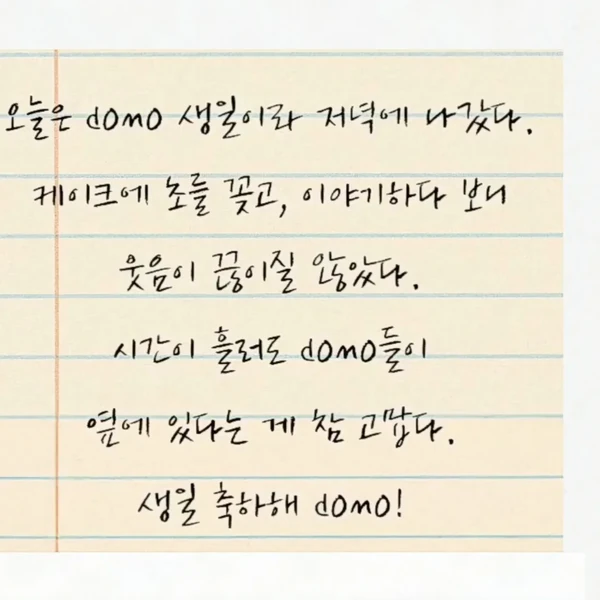 오늘은 domo 생일이라 저녁에 나갔다.
케이크에 초를 꽂고, 이야기하다 보니
웃음이 끊이질 않았다.
시간이 흘러도 domo들이
옆에 있다는 게 참 고맙다.
생일 축하해 domo!